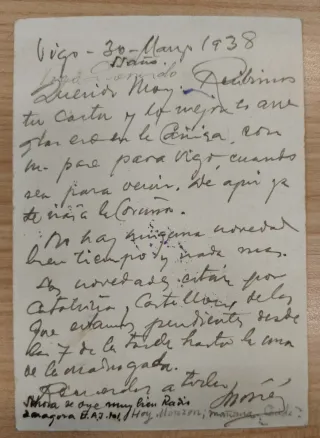 Vigo - 30 - Marzo 1938
Querido Moy: Recibimos
tu carta y lo mejor es que
en la Cañiza, con
un pase para Vigo, cuando
sea para venir. De aqui ya
te vas a la Coruña.
No hay ninguna novedad
buen tiempo y nada mas.
Las novedades estan por
Cataluña, Castellon de las
que estamos pendientes desde
las 7 de la tarde hasta la una
de la madrugada.
Recuerdos a todos
Ahora se oye muy bien Radio
Zaragoza E.A.J. 101, Hoy Monzon; mañana